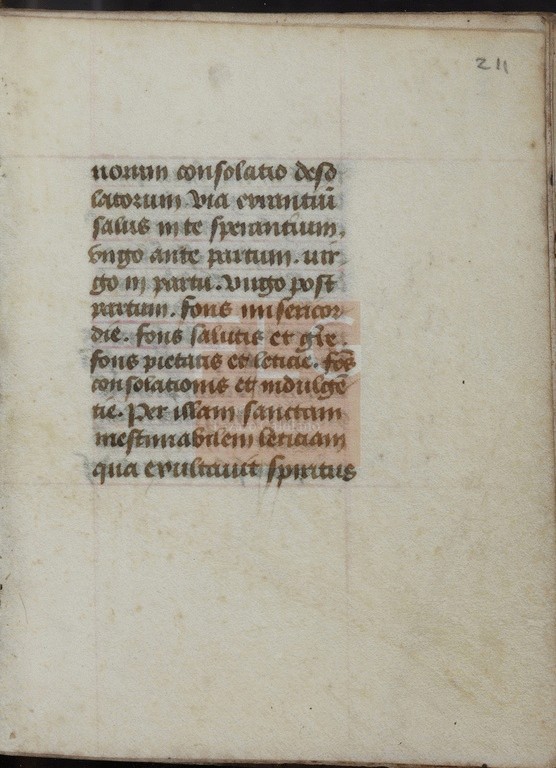 211
norum consolatio deso
latorum. Via errantiū
salus in te sperantium.
virgo ante partum. uir
go in partu. Virgo post
partum. fons misericor
die. fons salutis et gr̄e.
fons pietatis et leticie. fōs
consolationis et indulgē
tie. Per illam sanctam
inestimabilem leticiam
qua exultauit spiritus